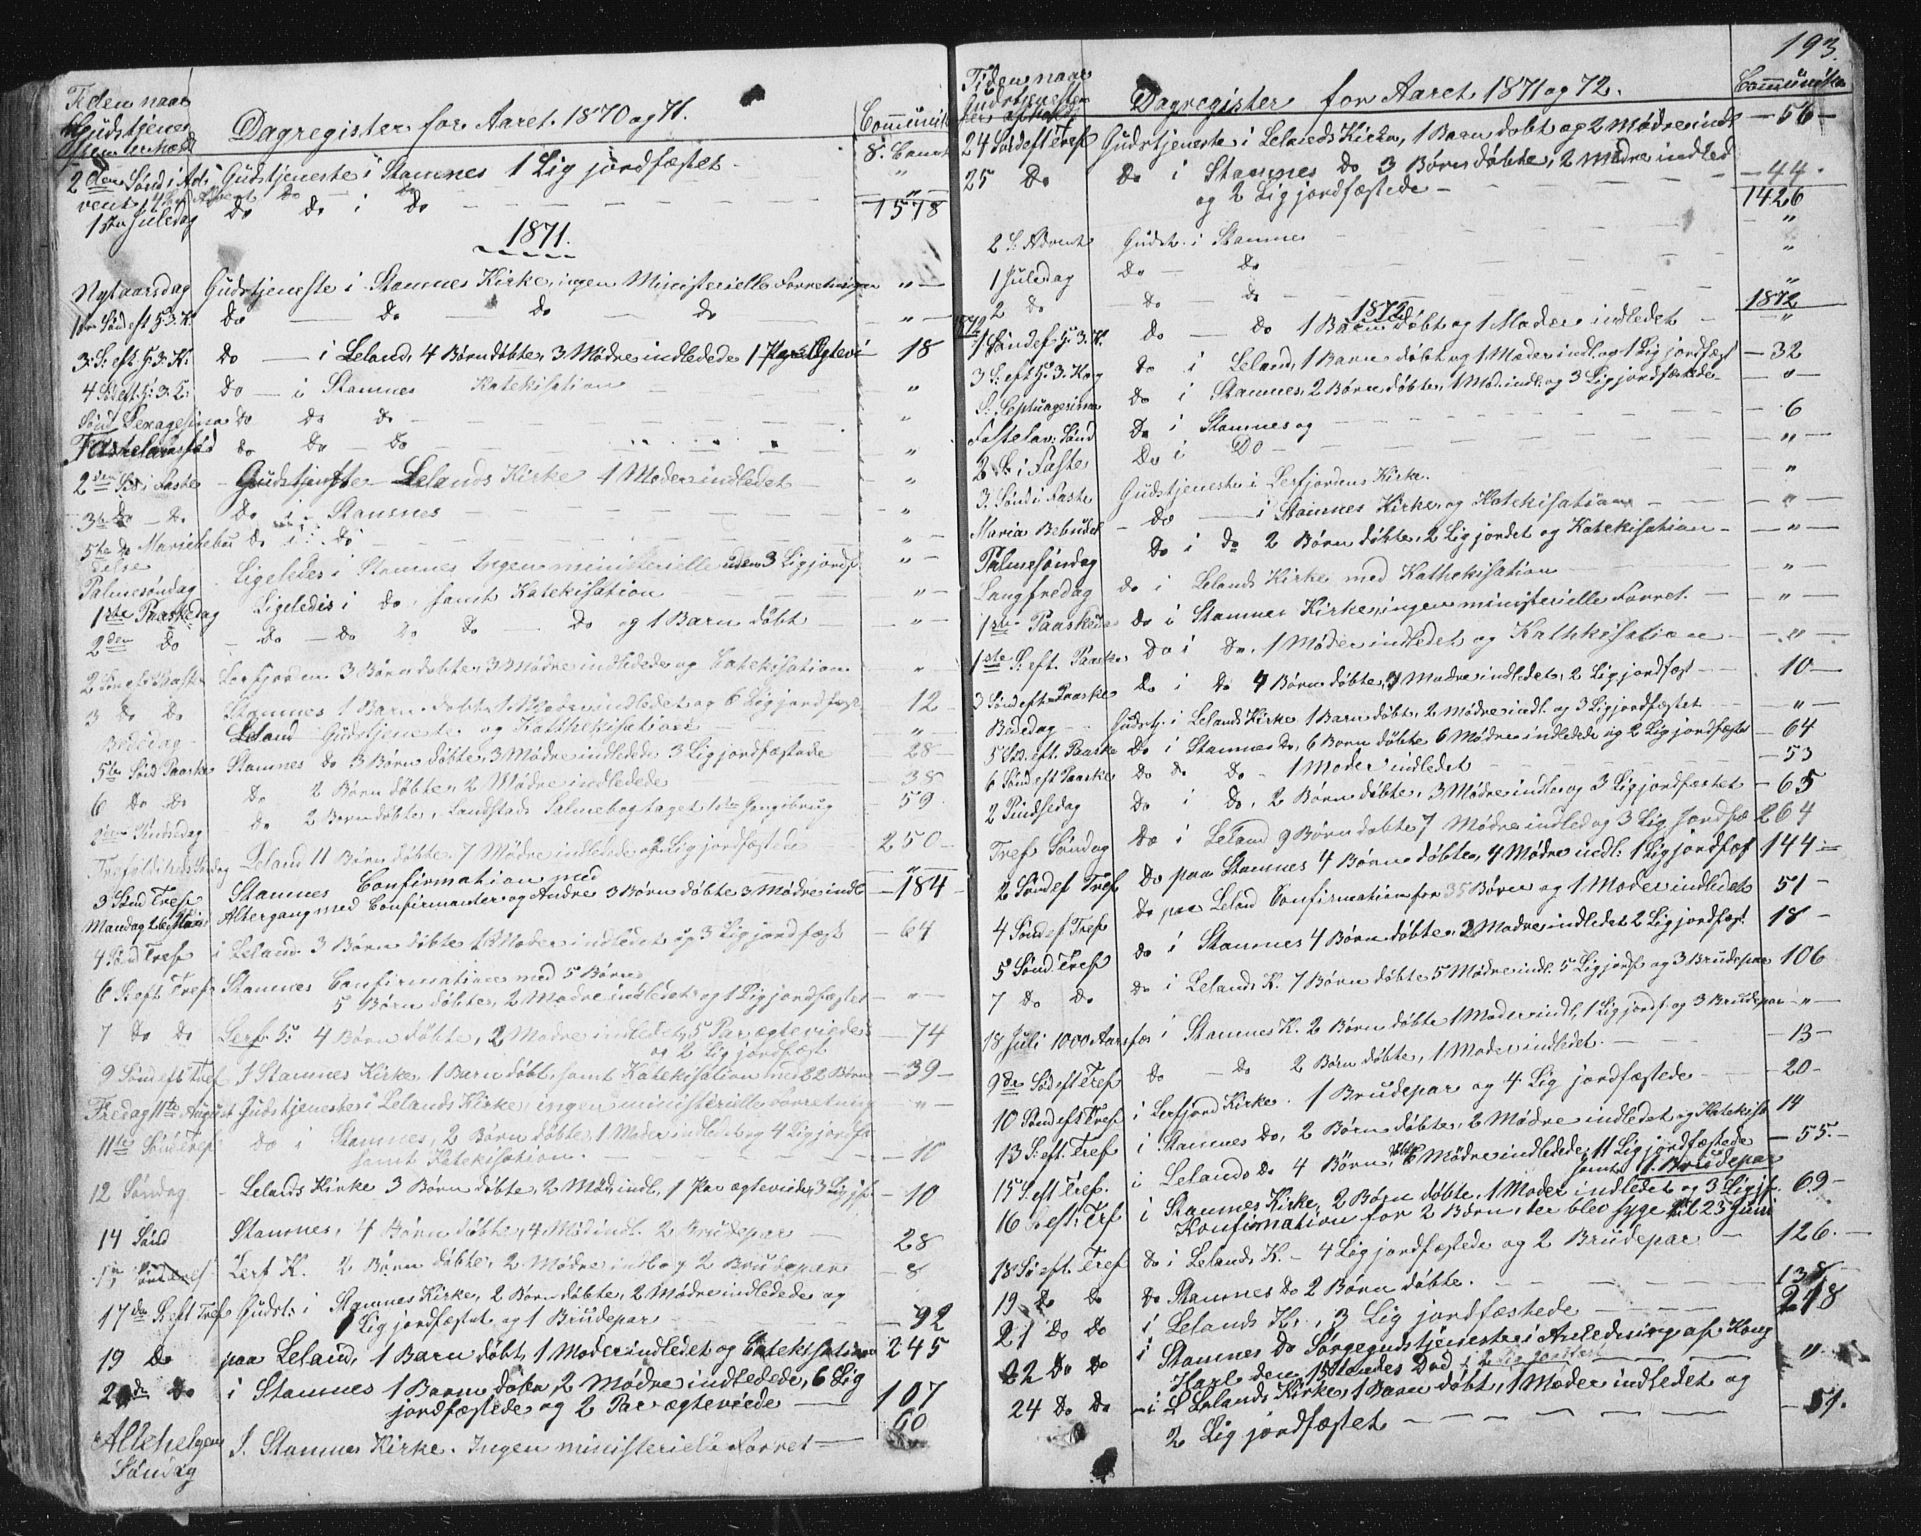 Tiden naar
Gudstjenes
Dagregister for Aaret 1870 og 71.
2den Sønd i Ad- Gudstjeneste i Stamnes 1 Lig jordfæstet
vent
1ste Juledag Do Do i Do 1578
1871.
Nytaarsdag Gudstjeneste i Stamnes Kirke, ingen Ministerielle Forretninger "
Do Do Do Do "
3. S. eft. H. 3. K. Do i Leland, 4 Børn døbte, 3 Mødre indledede 1 Par 18
Do i Stamnes Katekisation "
Sønd Sexagesima Do Do Do "
Fastelavns Do Do Do "
2den S. i Faste Gudstjeneste Lelands Kirke 1 Moder indledet "
3de Do Do Do i Stamnes "
5te Do Mariæ bebu Do i Do "
delse
Palmesøndag Ligeledes i Stamnes Ingen ministerielle uden 3 Lig jordf. "
1ste Paaskedag Ligeledes i Do, samt Katekisation "
2den Do Do Do Do Do Do og 1 Barn døbt "
Lerfjorden 3 Børn døbte, 3 Mødre indledede og Katekisation "
3 Do Do Stamnes 1 Barn døbt, 1 Moder indledet og 6 Lig jordfæst 12
Bededag Leland Gudstjeneste og Kathekisation "
5te Sønd Paaske Stamnes Do 3 Børn døbte, 3 Mødre indledede 3 Lig jordfæstede 28
6 Do Do Do 2 Børn døbte, 2 Mødre indledede 38
2den Pindsedag Do 2 Børn døbte, Landstads Salmebog taget 59
Trefoldigheds Søndag Leland 11 Børn døbte 7 Mødre indledede og 2 Lig jordfæstede 250
3 Sønd Tref Stamnes Confirmation med
Mandag 26 Altergang med Confirmanter og Andre 3 Børn døbte 3 Mødre indle 184
4 Sønd Tref i Leland 3 Børn døbte 1 Moder indledet og 3 Lig jordfæst 64
6 S. eft Tref Stamnes Confirmation med 5 Børn
5 Børn døbte, 2 Mødre indledet og 1 Lig jordfæstet "
7 Do Do Lerf. 4 Børn døbte, 2 Mødre indledet, 5 Par ægteviede 74
og 2 Lig jordfæst
9 Sønd eft Tref I Stamnes Kirke, 1 Barn døbt, samt Katekisation med 22 Børn 39
Fredag 11te August Gudstjeneste i Lelands Kirke, ingen ministerielle Forretning "
11te Sønd Tref Do i Stamnes, 2 Børn døbte, 1 Moder indled og 4 Lig jordf
samt Katekisation. 10
12 Søndag Lelands Kirke 3 Børn døbte, 2 Mød. indl, 1 Par ægteviede, 3 Lig jf. 10
14 Sønd Stamnes, 4 Børn døbte, 4 Mød indl. 2 Brudepar 28
Lerf K. 2 Børn døbte, 2 Mødre indl og 2 Brudepar 8
17de S. eft Tref Gudst. i Stamnes Kirke, 2 Børn døbte, 2 Mødre indledede og
1 Lig jordfæstet og 1 Brudepar 92
19 Do paa Leland, 1 Barn døbt, 1 Moder indledet og Katekisation 245
Do i Stamnes 1 Barn døbt, 2 Mødre indledede, 6 Lig
jordfæstede og 2 Par ægteviede 107
60
Allehelgens I. Stamnes Kirke. Ingen ministerielle Forret
Søndag
193.
Tiden naar
Gudstjenesten
Dagregister for Aaret 1871 og 72.
24 Sønd eft Tref Gudstjeneste i Lelands Kirke, 1 Barn døbt og 2 Mødre indl 56
25 Do Do i Stamnes Do 3 Børn døbte, 2 Mødre indled
og 2 Lig jordfæstede 44
1426
2 S. Advent Gudst. i Stamnes "
1 Juledag Do Do "
2 Do Do Do "
1872
Do Do 1 Barn døbt og 1 Moder indledet "
3 S. eft H. 3. Kog Do i Leland, 1 Barn døbt og 1 Moder indl. og 1 Lig jordfæst 32
S. Septuagesima Do i Stamnes, 2 Børn døbte, 1 Mod. indl. og 3 Lig jordfæstede "
Fastelav. Sønd Do i Stamnes og 6
2 S. i Faste Do i Do "
3. Sønd i Faste Gudstjeneste i Lerfjordens Kirke. "
Maria Bebudel Do i Stamnes Kirke, og Katekisation "
Palmesøndag Do i do 2 Børn døbte, 2 Lig jordet og Katekisation "
Langfredag do i Lelands Kirke med Kathekisation "
1ste Paaskeda do i Stamnes Kirke, ingen ministerielle Forret. "
1ste S. eft. Paaske Do i Do. 1 Moder indledet og Kathkisation "
3 Sønd eft Paaske Do i Do 4 Børn døbte, Mødre indledet, 2 Lig jordfæst 10
Bededag Gudstj. i Lelands Kirke 1 Barn døbt, 2 Mødre indl. og 3 Lig jordfæstet "
5 Sød. eft. Paaske Do i Stamnes Do, 6 Børn døbte 6 Mødre indledede og 2 Lig jordfæst 64
6 Sønd eft Paaske Do Do Do 1 Moder indledet 53
2 Pindsedag Do i Do, 2 Børn døbte, 3 Mødre indl og 3 Lig jordfæstet 65
Tref Søndag Do i Leland 9 Børn døbte 7 Mødre indled og 3 Lig Jordfæ 264
2 Sønd ef Tref Do paa Stamnes 4 Børn døbte, 4 Mødre indl: 1 Lig jordfæs 144
4 Sønd ef Tref Do paa Leland Confirmation for 35 Børn og 1 Moder indledet 51
5 Sønd Tref do i Stamnes 4 Børn døbte, 2 Mødre indledet 2 Lig jordfæst. 18
7 Do Do do i Lelands K. 7 Børn døbte 5 Mødre indl. 5 Lig jordf og 3 Brudepar 106
18 Juli 1000 Aarsfæs i Stamnes K. 2 Børn døbte 1 Moder indl, 1 Lig jordf og 3 Brudepar "
9de Sød eft Tref do Do 2 Børn døbte, 1 Moder indledet. 13
10 Sønd eft Tref i Lerfjord Kirke. 1 Brudepar og 4 Lig jordfæstede 20
13 S. eft. Tref i Stamnes Do, 2 Børn døbte, 2 Mødre indledet og Katekisa 14
15 S. eft Tref. i Lelands Do 4 Børn døbt 6 Mødre indledede, 11 Lig jordfæstede 55
samt 1 Brudepar
16 S. eft: Tref i Stamnes Kirke, 2 Børn døbte, 1 Moder indledet og 3 Lig jf. 69
Konfirmation for 2 Børn, der blev syge 23 Juni
18 Sø eft. Tref do i Lelands K. 4 Lig jordfæstede og 2 Brudepar 126.
19 Do Do Do Stamnes Do 2 Børn døbte. 138
21 Do Do i Lelands K., 3 Lig jordfæstede 218
22 Do Do i Stamnes Do Sørgegudstjeneste i Anledning af Kong
Karl den 15 tendes Død "
24 Do Do i Lelands Kirke, 1 Barn døbt, 1 Moder indledet og
2 Lig jordfæstet 51.